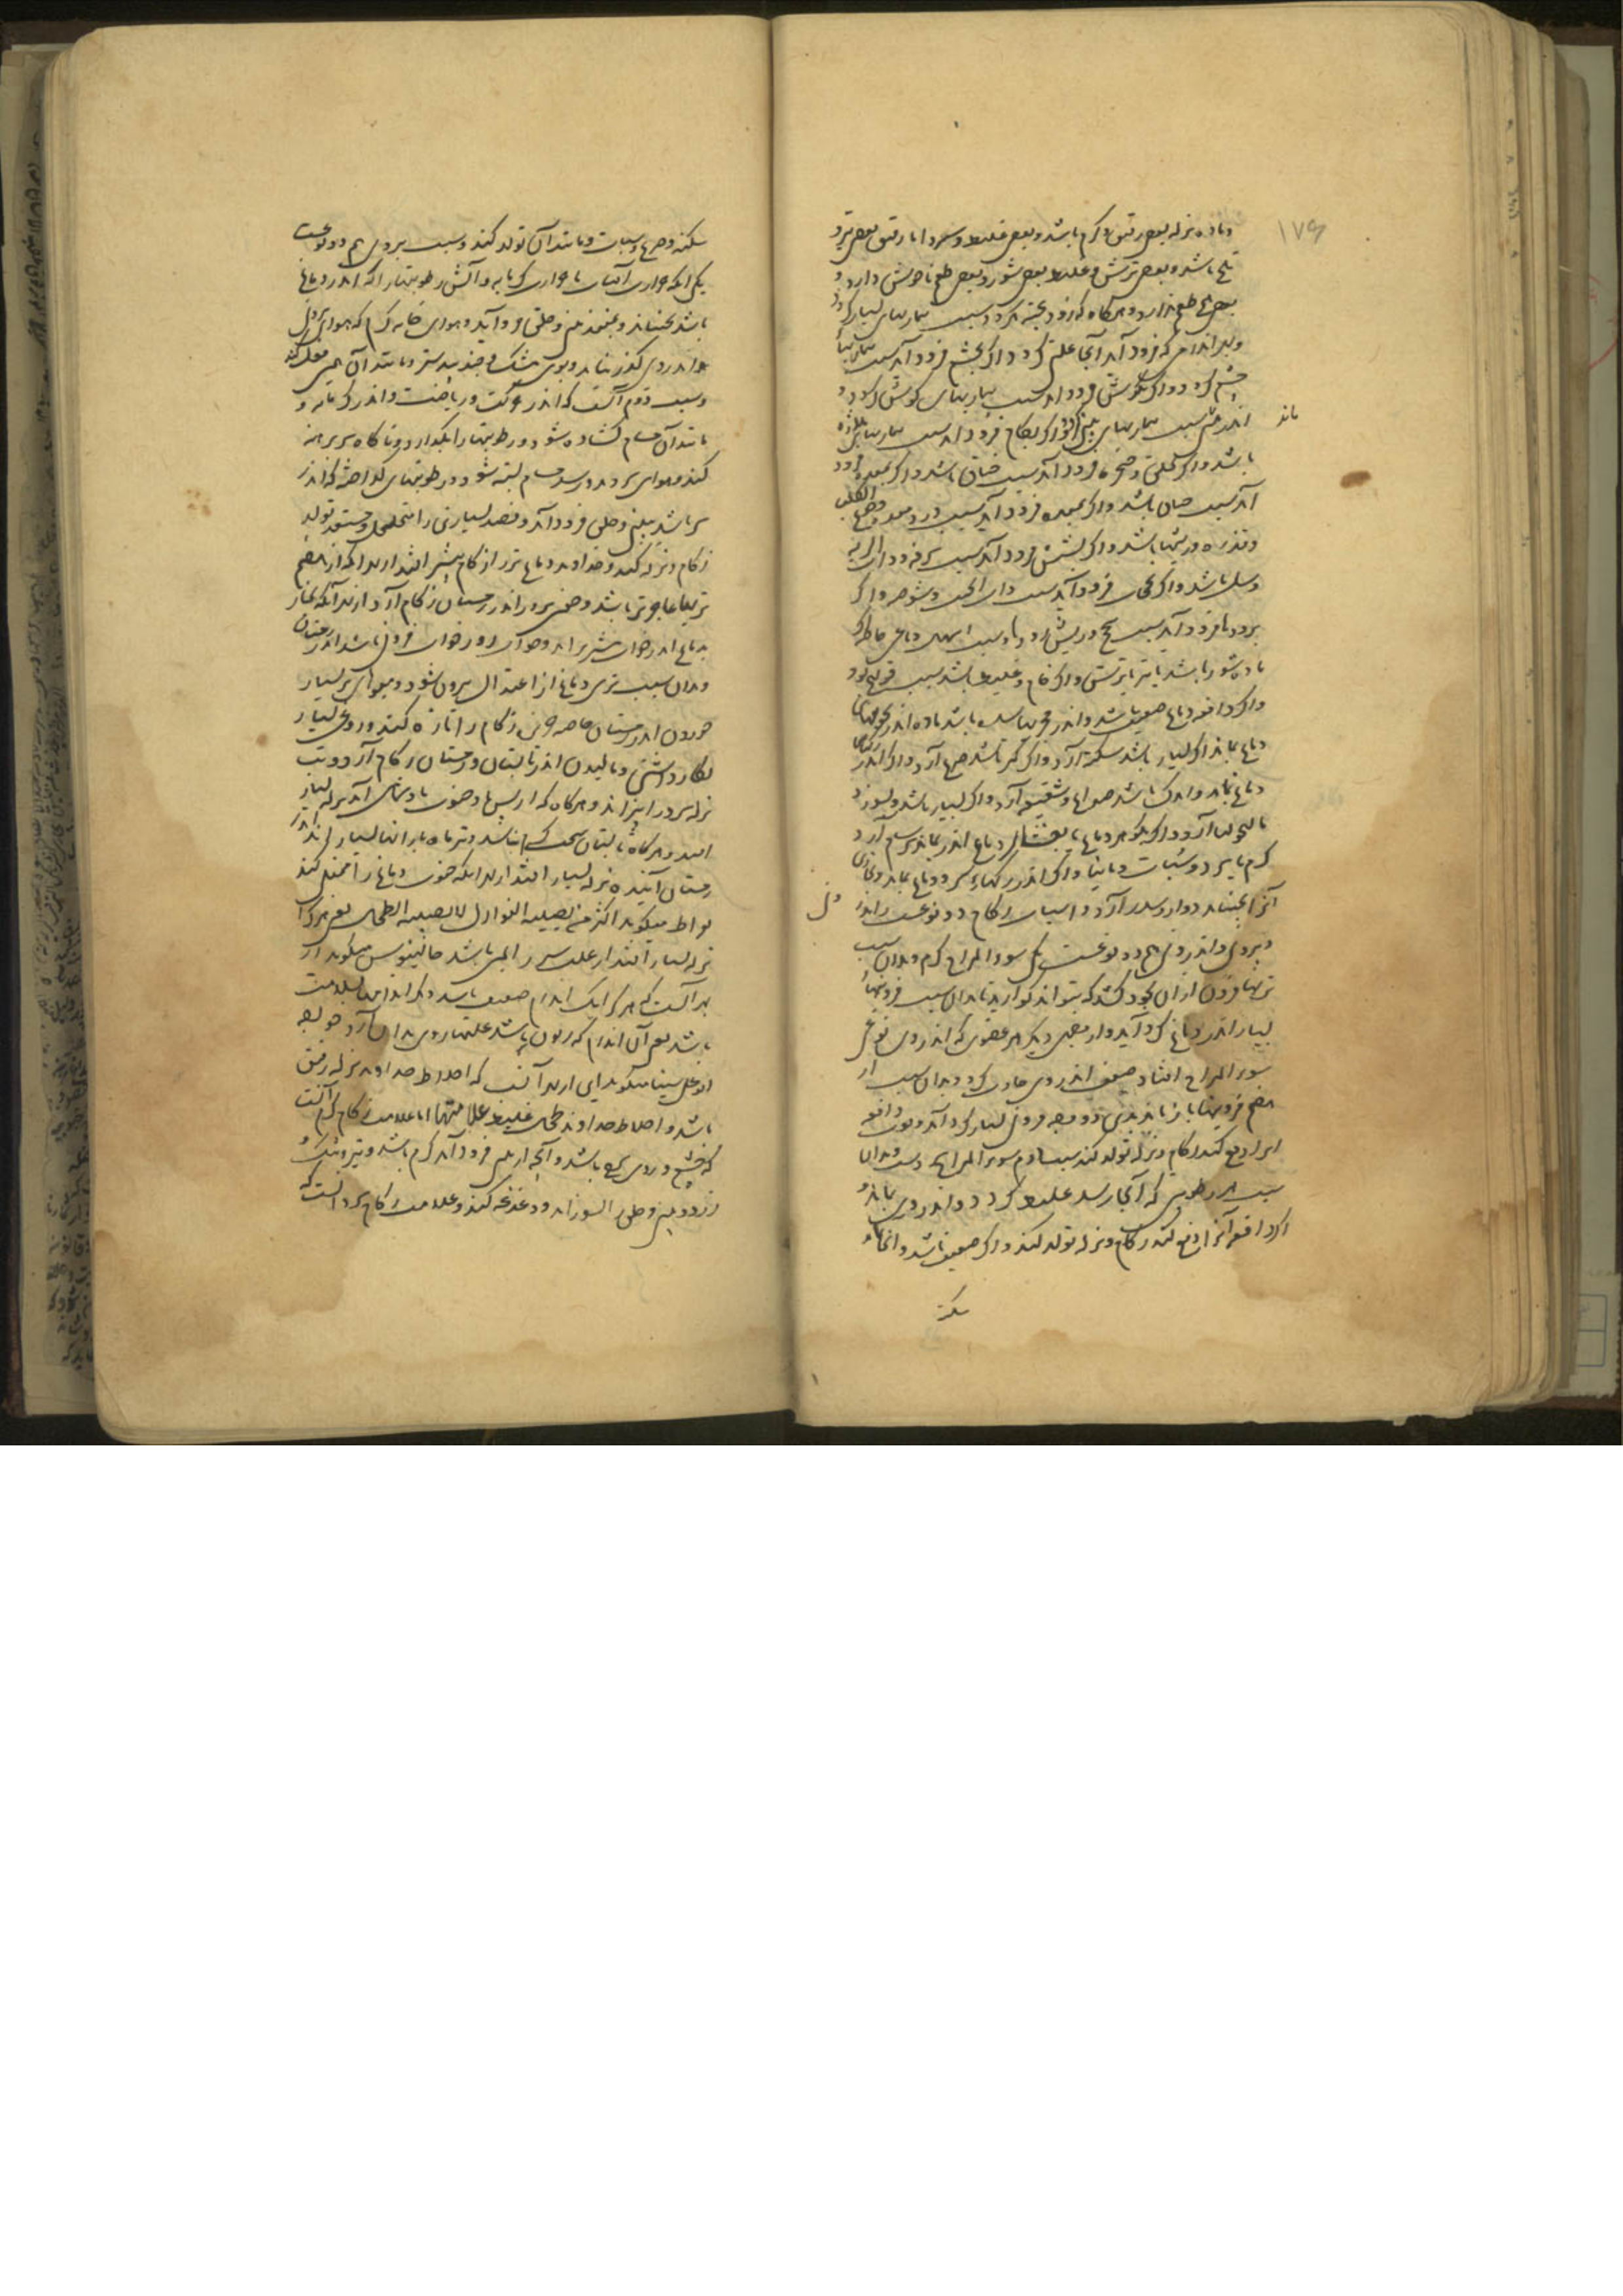 ۱۷۹
و ماده نزله بعضی رقیق و گرم باشد و بعضی غلیظ و سرد اما رقیق بعضی تیز و
تلخ باشد و بعضی ترش و غلیظ بعضی شور و بعضی طعم ناخوش دارد و
بعضی هیچ طعم ندارد و هرگاه که زود پخته گردد سبب بیماریهای بسیار گردد
و بهر اندام که فرود آید آنجا علتی گردد اگر بچشم فرود آید سبب بیماریهاء
چشم گردد و اگر بگوش فرود آید سبب بیماریهای گوش گردد و
اندر بینی سبب بیماریهای بینی و اگر بکام فرود آید سبب بیماریهای ملازه
ماند
باشد و اگر بحلق و حنجره فرود آید سبب خناق باشد و اگر بمعده فرود
آید سبب باشد و اگر بمعده فرود آید سبب درد معده و
باشد و اگر بشش فرود آید سبب سرفه و ذات الریه
و سل باشد و اگر بحجاب فرود آید سبب ذات الجنب و شوصه و اگر
برودها فرود آید سبب سحج و ریش رودها و سبب اسهال دماغی خاصه که
ماده شور باشد یا تیز یا ترش و اگر خام و غلیظ باشد سبب قولنج بود
و اگر دافعه دماغ ضعیف باشد و اندر مجریها سده باشد ماده اندر تجویفهای
دماغ بماند اگر بسیار باشد سکته آرد و اگر کمتر باشد صرع آرد و اگر اندر رگهای
دماغ بماند و اندک باشد صداع و شقیقه آرد و اگر بسیار باشد و بسوزد
مالیخولیا آرد و اگر بگوهر دماغ یا بغشاء دماغ اندر بماند سرسام آرد
گرم یا سرد و سبات و مانیا و اگر اندر رگهاء سر و دماغ بماند و بخاری
آنرا بجنباند دوار و سدر آرد و اسباب زکام دو نوعست اندرونی
و بیرونی و اندرونی هم دو نوعست یکی سوء المزاج گرم و بدان سبب
تریها فزون از آن بخود کشد که بتواند گوارید تا بدان سبب فزونیهاء
بسیار اندر دماغ گرد آید و از بهر دیگر هر عضوی که اندر وی نوعی
سوء المزاج افتاد ضعف اندر وی حادث گردد و بدان سبب از
هضم فزونیها باز ماند بدین دو وجه فزونی بسیار گرد آید و قوت دافعه
آنرا دفع کند زکام و نزله تولد کند سبب دوم سوء المزاج سردست و بدان
سبب هر رطوبتی که آنجا رسد غلیظ گردد و اندر وی بماند و
اگر دافعه آنرا دفع کند زکام و نزله تولد کند و اگر ضعیف باشد و آنجا
سکته
سکته و صرع و سبات و مانند آن تولد کند و سبب بیرونی هم دو نوعست
یکی آنکه حرارت آفتاب یا حرارت گرمابه و آتش رطوبتها را که اندر دماغ
باشد بجنباند و بمنفذ بینی و حلق فرود آید و هوای خانه گرم که هوای بیرون
هوا اندر وی گذر نیابد و بوی مشک و جندبیدستر و مانند آن همین فعل کند
و سبب دوم آنست که اندر حرکت و ریاضت و اندر گرمابه و
مانند آن مسام گشاده شود و رطوبتها را بگدازد و ناگاه سر برهنه
کند و هوای سرد بدو رسد مسام بسته شود و رطوبتهای گداخته که اندر
سر باشد به بینی و حلق فرود آید و فصد بسیار نیز را متخلخل و مستعد تولد
زکام و نزله کند و خداوند دماغ تر را زکام بیشتر افتد از بهر آنکه از هضم
تریها عاجزتر باشد و حفن سرد اندر زمستان زکام آرد از بهر آنکه بخار
بدماغ اندر خواب بیشتر برآید و خواب روز خواب فزونی باشد اندر زمستان
و بدان سبب تری دماغ از اعتدال بیرون شود و میوه‌های تر بسیار
خوردن اندر زمستان خاصه خربزه زکام را تازه کند و روغن بسیار
بکار داشتن و مالیدن اندر تابستان و زمستان زکام آرد و تب
نزله سرد را ببراند و هرگاه که از پس باد جنوب باد شمالی آید نزله بسیار
افتد و هرگاه تابستان سخت گرم نباشد و تر ماه باران بسیار آید اندر
زمستان آینده نزله بسیار افتد از بهر آنکه جنوب دماغ را ممتلی کند
بقراط میگوید اکثر من یصیبه النوازل لا یصیبه الطحال یعنی هر کرا
نزله بسیار افتد از علت سپرز ایمن باشد جالینوس میگوید از
بهر آنست که هر کرا یک اندام ضعیف باشد دیگر اندامها بسلامت
باشد یعنی آن اندام که زبون باشد علتها روی بدان آرد خواجه
ابو علی سینا میگوید این از بهر آنست که اخلاط خداوند نزله رقیق
باشد و اخلاط خداوند طحال غلیظ علامتها اما علامت زکام گرم آنست
که چشم و روی سرخ باشد و آنچه از بینی فرود آید گرم باشد و تیز و تنک و
زرد و بینی و حلق را بسوزاند و دغدغه کند و علامت زکام سرد آنست که